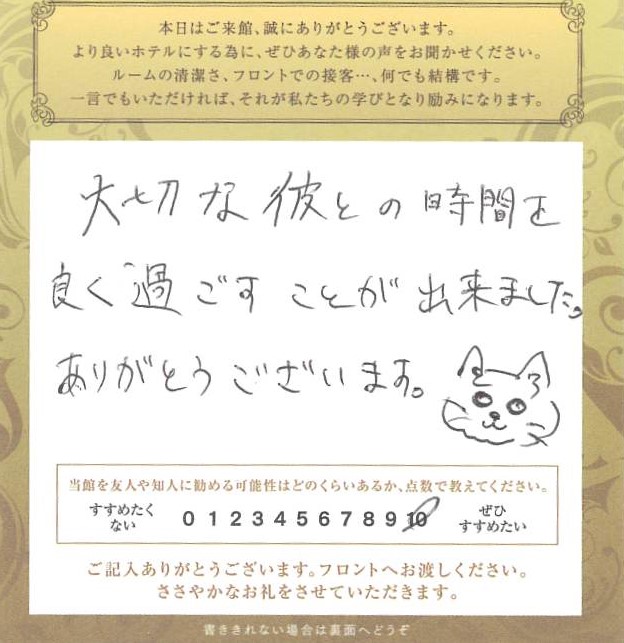 本日はご来館、誠にありがとうございます。
より良いホテルにする為に、ぜひあなた様の声をお聞かせください。
ルームの清潔さ、フロントでの接客…、何でも結構です。
一言でもいただければ、それが私たちの学びとなり励みになります。
大切な彼との時間を
良く過ごすことが出来ました。
ありがとうございます。
当館を友人や知人に勧める可能性はどのくらいあるか、点数で教えてください。
すすめたく
ない
0 1 2 3 4 5 6 7 8 9 10
ぜひ
すすめたい
ご記入ありがとうございます。フロントへお渡しください。
ささやかなお礼をさせていただきます。
書ききれない場合は裏面へどうぞ